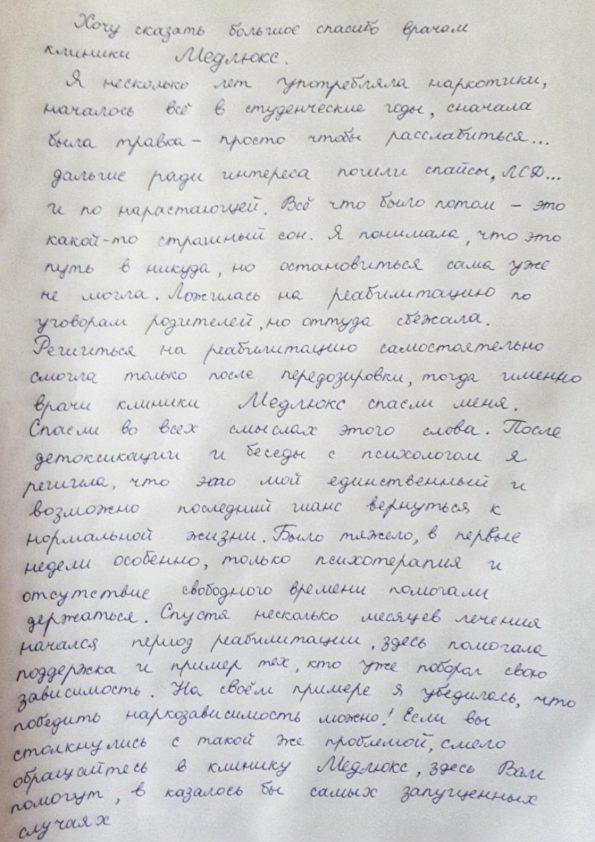 Хочу сказать большое спасибо врачам
клиники Медлюкс.
Я несколько лет употребляла наркотики,
началось всё в студенческие годы, сначала
была травка - просто чтобы расслабиться...
дальше ради интереса пошли спайсы, ЛСД...
и по нарастающей. Всё что было потом - это
какой-то страшный сон. Я понимала, что это
путь в никуда, но остановиться сама уже
не могла. Ложилась на реабилитацию по
уговорам родителей, но оттуда сбежала.
Решиться на реабилитацию самостоятельно
смогла только после передозировки, тогда именно
врачи клиники Медлюкс спасли меня.
Спасли во всех смыслах этого слова. После
детоксикации и беседы с психологом я
решила, что это мой единственный и
возможно последний шанс вернуться к
нормальной жизни. Было тяжело, в первые
недели особенно, только психотерапия и
отсутствие свободного времени помогали
держаться. Спустя несколько месяцев лечения
начался период реабилитации, здесь помогала
поддержка и пример тех, кто уже поборол свою
зависимость. На своём примере я убедилась, что
победить наркозависимость можно! Если вы
столкнулись с такой же проблемой, смело
обращайтесь в клинику Медлюкс, здесь Вам
помогут, в казалось бы самых запущенных
случаях